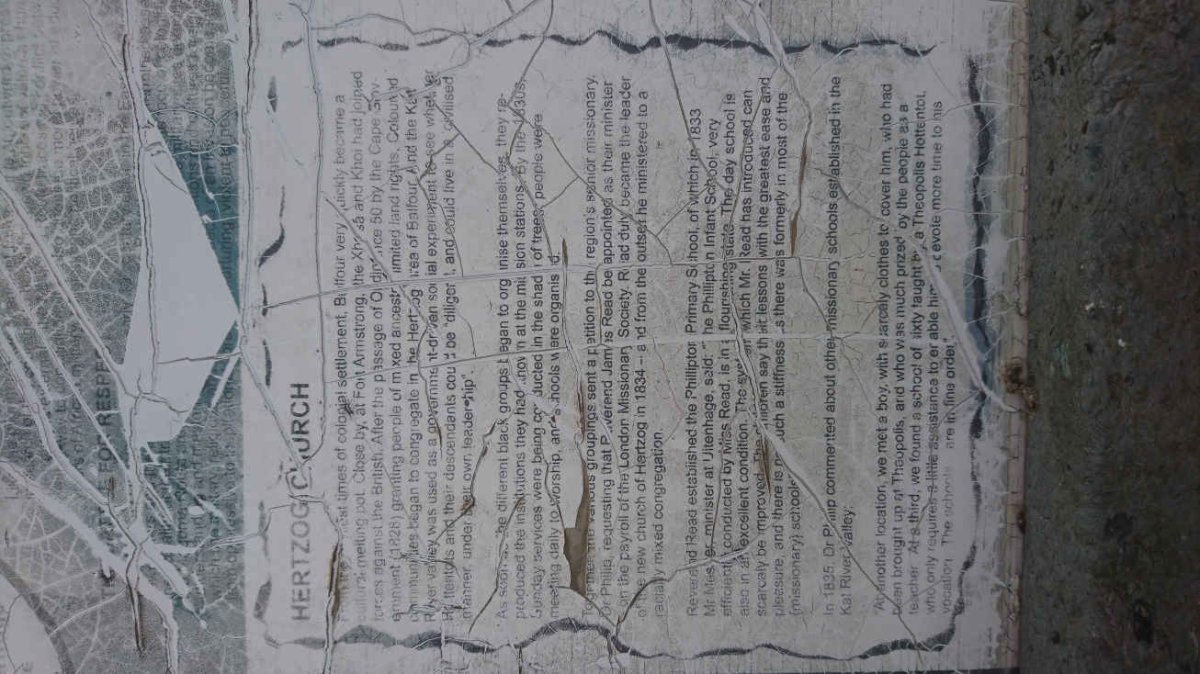 HERTZOG CHURCH
times of colonial settlement, Balfour very quickly became a
cultural melting pot. Close by, at Fort Armstrong, the Xhosa and Khoi had joined
forces against the British. After the passage of Ordinance 50 by the Cape
(1828) granting people of mixed ancestry limited land rights, Coloured
communities began to congregate in the Hertzog area of Balfour. And the Kat
River valley was used as a government-driven social experiment to see whether
Hottentots and their descendants could be "diligent, and could live in a civilised
manner, under their own leadership".
As soon as the different black groups began to organise themselves, they re-
produced the institutions they had known at the mission stations. By the 1830s,
Sunday services were being conducted in the shade of trees, people were
meeting daily to worship, and schools were organised.
Together the various groupings sent a petition to the region's senior missionary,
Dr Philip, requesting that Reverend James Read be appointed as their minister
on the payroll of the London Missionary Society. Read duly became the leader
of the new church of Hertzog in 1834 – and from the outset he ministered to a
racially mixed congregation.
Reverend Read established the Philipton Primary School, of which in 1833
Mr Messer, minister at Uitenhage, said: "The Philipton Infant School, very
efficiently conducted by Miss Read, is in a flourishing state. The day school is
also in an excellent condition. The system which Mr. Read has introduced can
scarcely be improved. The children say their lessons with the greatest ease and
pleasure, and there is no such a stiffness as there was formerly in most of the
(missionary) schools
In 1835 Dr Philip commented about other missionary schools established in the
Kat River Valley:
"At another location, we met a boy, with scarcely clothes to cover him, who had
been brought up at Theopolis, and who was much prized by the people as a
teacher. At a third, we found a school of sixty taught by a Theopolis Hottentot,
who only requires a little assistance to enable him to devote more time to his
vocation. The schools are in fine order".